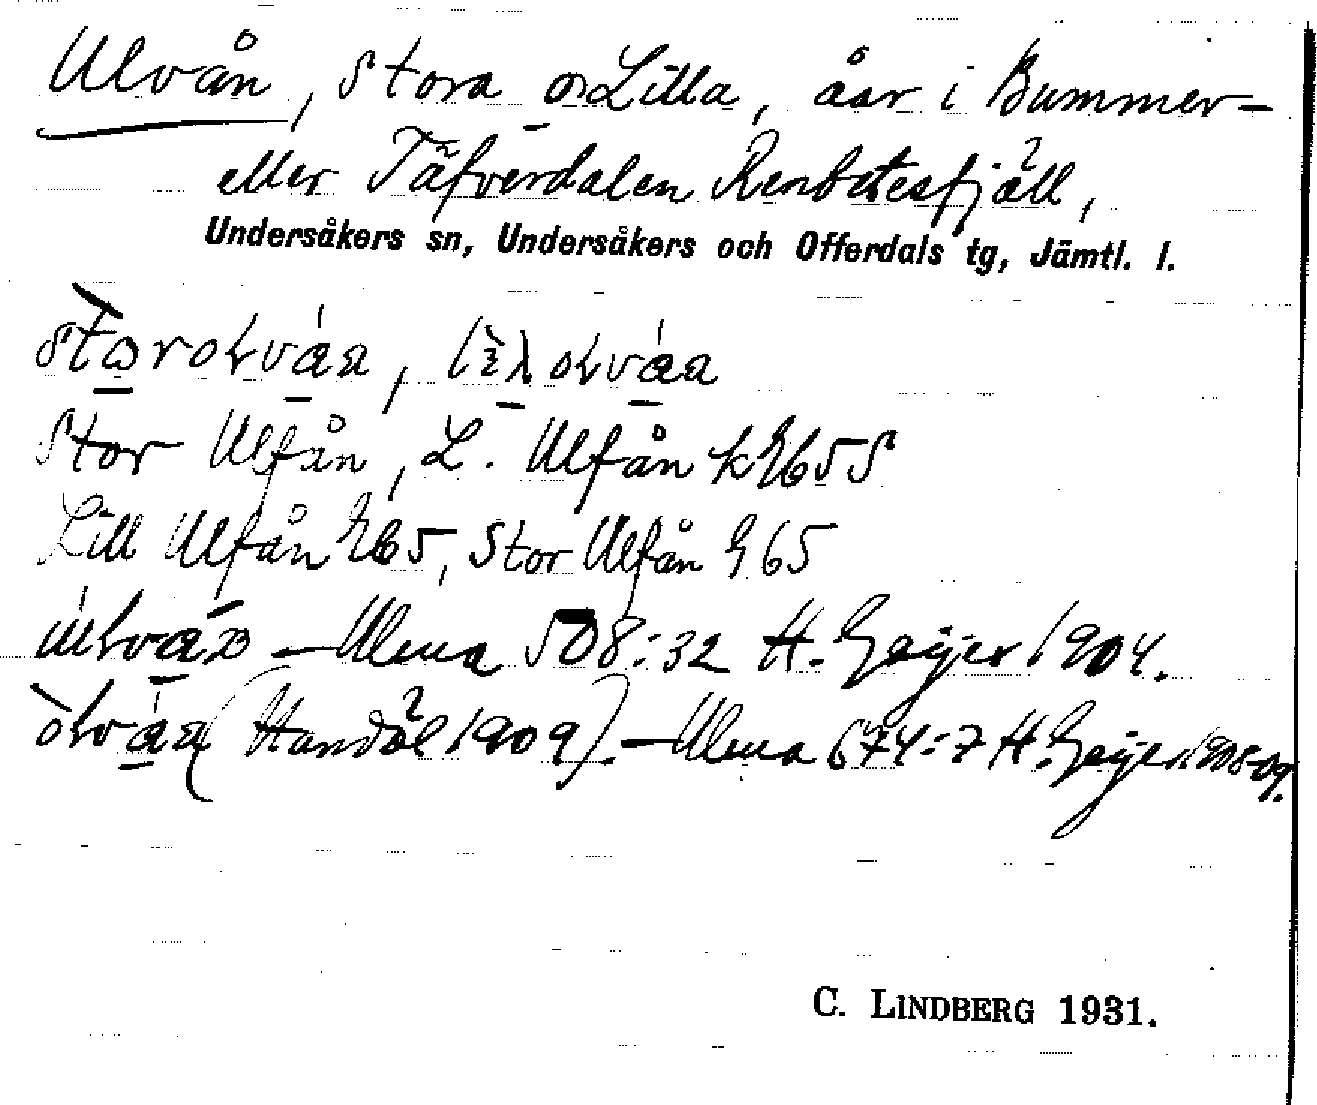 Ulvån, Stora o Lilla, åar i Bummer-
eller Täfverdalen Renbetesfjäll,
Undersåkers sn, Undersåkers och Offerdals tg, Jämtl. l.
Stor Ulfån, L. Ulfån
Lill Ulfån 65, Stor Ulfån 65
– Ulma 508:32 H. Geijer 1904.
(Handöl 1909). – Ulma 674:7 H. Geijer 1908-09.
C. LINDBERG 1931.